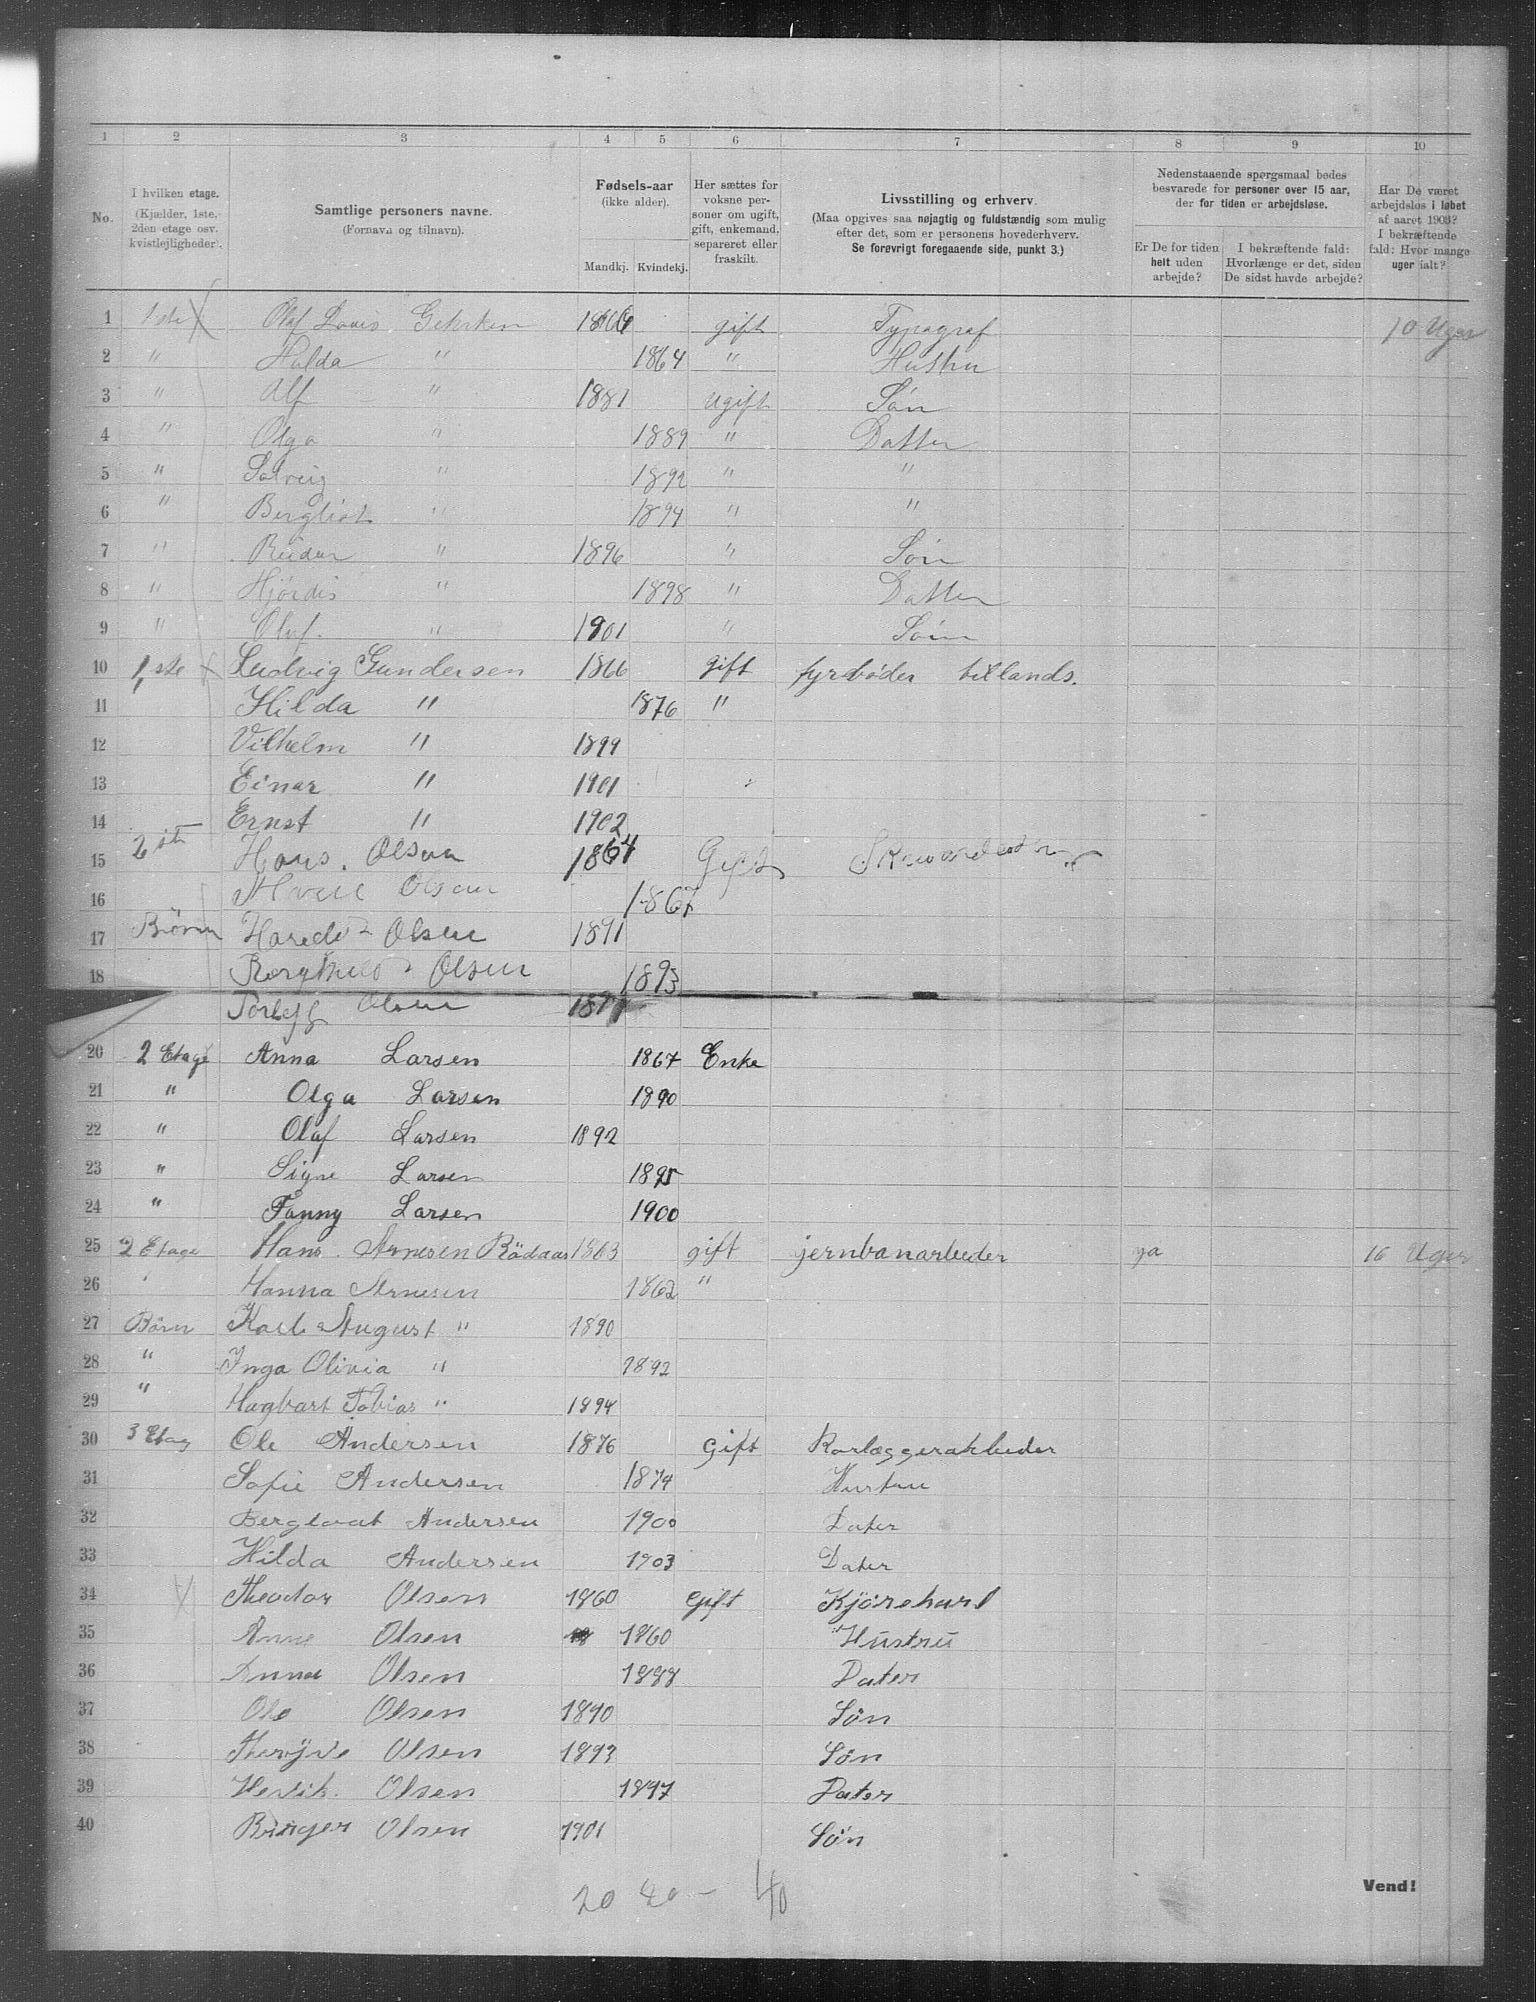 1 2 3 4 5 6 7 8 9 10
No. I hvilken etage. (Kjælder, 1ste, 2den etage osv. kvistlejligheder). Samtlige personers navne. (Fornavn og tilnavn). Fødsels-aar (ikke alder). Mandkj. Kvindekj. Her sættes for voksne personer om ugift, gift, enkemand, separeret eller fraskilt. Livsstilling og erhverv. (Maa opgives saa nøjagtig og fuldstændig som mulig efter det, som er personens hovederhverv. Se forøvrigt foregaaende side, punkt 3.) Nedenstaaende spørgsmaal bedes besvarede for personer over 15 aar, der for tiden er arbejdsløse. Er De for tiden helt uden arbejde? I bekræftende fald: Hvorlænge er det, siden De sidst havde arbejde? Har De været arbejdsløs i løbet af aaret 1903? I bekræftende fald: Hvor mange uger ialt?
1 1ste Olaf Louis Gehrken 1866 gift Typograf 10 Uger
2 " Hulda " 1864 " Hustru
3 " Alf " 1881 ugift Søn
4 " Olga " 1889 " Datter
5 " Solveig " 1892 " "
6 " Bergliot " 1894 " "
7 " Reidar " 1896 " Søn
8 " Hjørdis " 1898 " Datter
9 " Olaf. " 1901 " Søn
10 1ste Ludvig Gundersen 1866 gift fyrbøder tillands.
11 Hilda " 1876 "
12 Vilhelm " 1899
13 Einar " 1901
14 Ernst " 1902
15 2 Hans. Olsen 1864 Gift
16 Olsen 1867
17 Børn Olsen 1891
18 Olsen 1893
Olsen
20 2 Etage Anna Larsen 1867 Enke
21 " Olga Larsen 1890
22 " Olaf Larsen 1892
23 " Signe Larsen 1895
24 " Fanny Larsen 1900
25 2 Etage Hans Arnesen Rödaas 1863 gift jernbanarbeder ja 16 Uger
26 Hanna Arnesen 1862 "
27 Børn Karl August " 1890
28 " Inga Olivia " 1892
29 " Hagbart Tobias " 1894
30 3 Etag Ole Andersen 1876 gift
31 Sofie Andersen 1874 Hustru
32 Andersen 1900 Dater
33 Hilda Andersen 1903 Dater
34 Theodor Olsen 1860 gift Kjørekarl
35 Anne Olsen 1860 Hustru
36 Anna Olsen 1888 Dater
37 Ole Olsen 1890 Søn
38 Olsen 1893 Søn
39 Olsen 1897 Dater
40 Birger Olsen 1901 Søn
20 20 - 40
Vend!